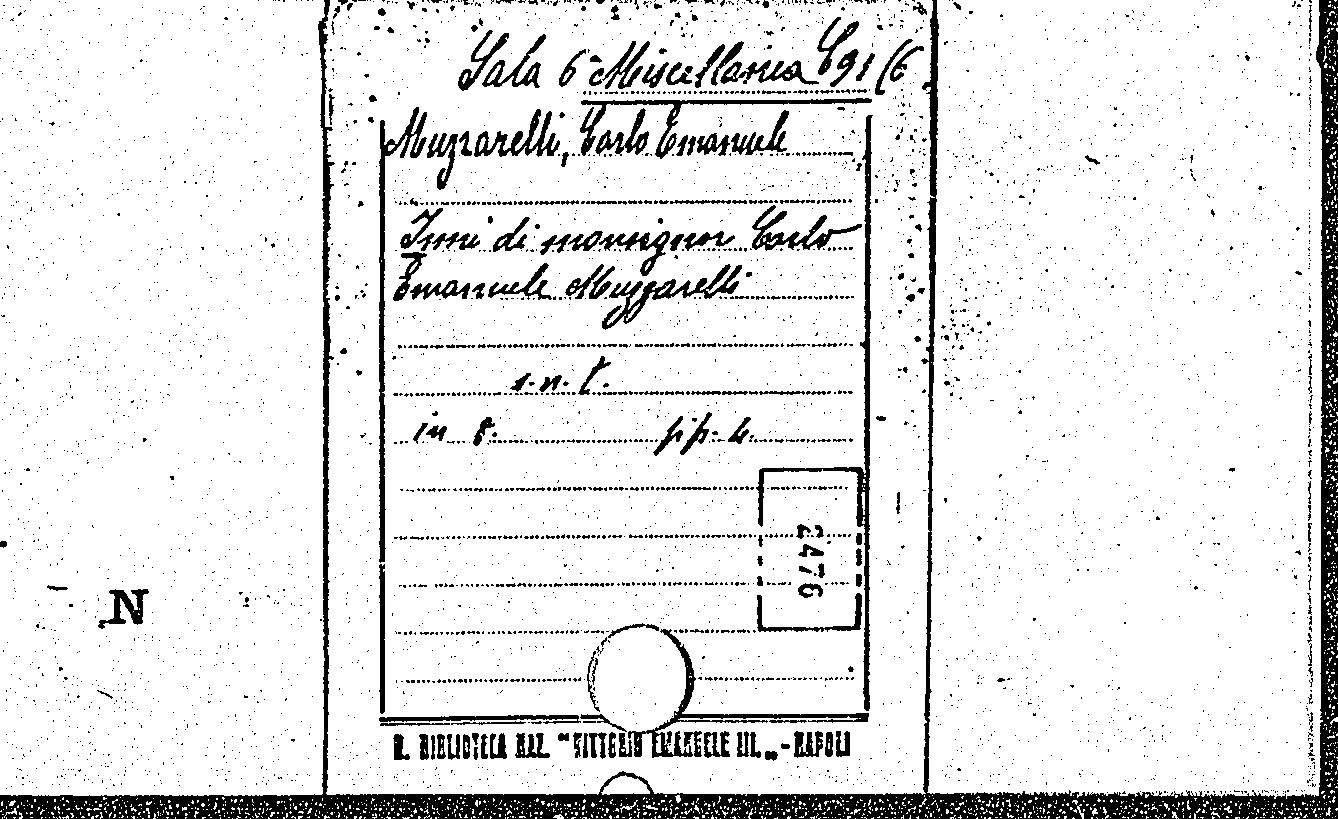 Sala 6ª Miscellanea C91(6
Muzzarelli, Carlo Emanuele
Inni di monsignor Carlo
Emanuele Muzzarelli
s. n. t.
in 8. pp. 4.
2476
N
R. BIBLIOTECA NAZ. "VITTORIO EMANUELE III„ - NAPOLI